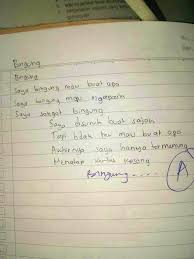 Bingung
Bingung
Saya bingung mau buat apa
Saya bingung mau ngapain
Saya sangat bingung
Saya disuruh buat sajak
Tapi tidak tau mau buat apa
Akhirnya saya hanya termenung
Menatap kertas kosong
Bingung....
A